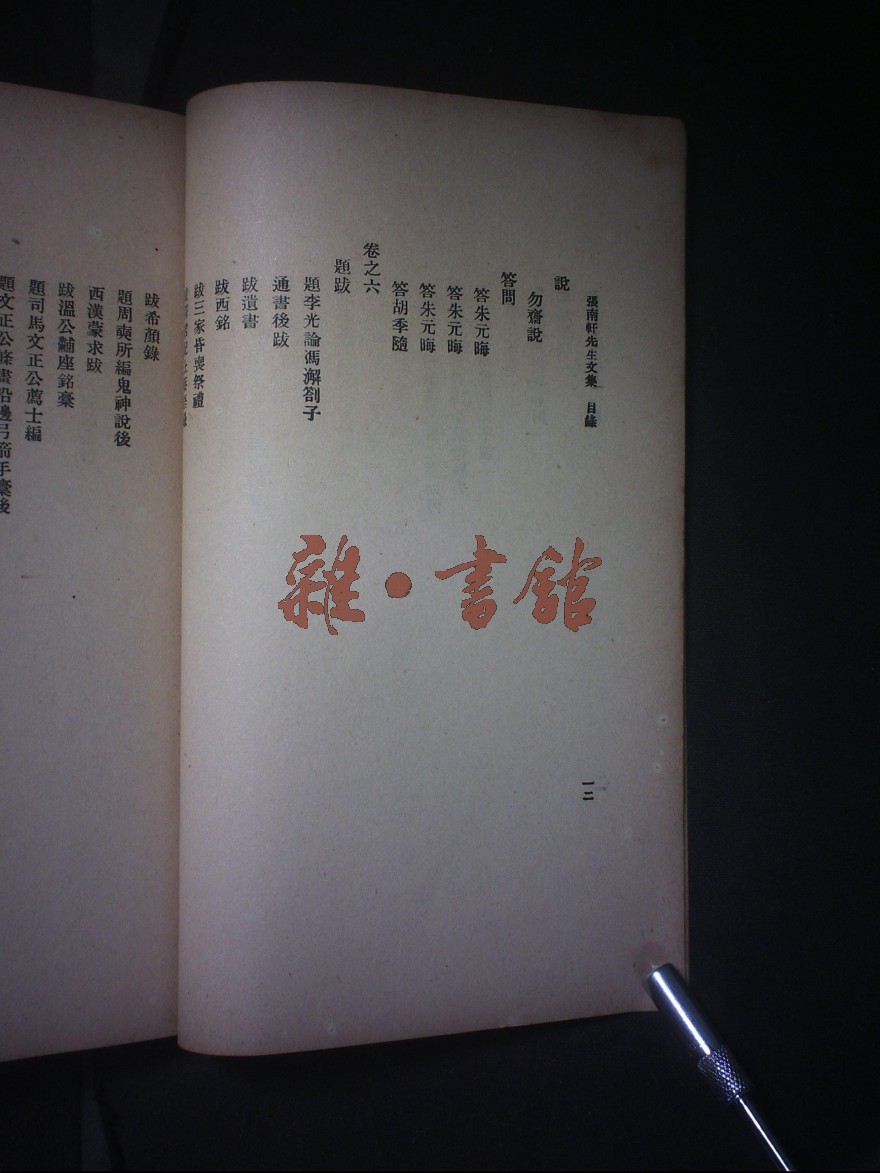 張南軒先生文集 目錄
說
勿齋說
答問
答朱元晦
答朱元晦
答朱元晦
答胡季隨
卷之六
題跋
題李光論馮澥劄子
通書後跋
跋遺書
跋西銘
跋三家昏喪祭禮
一二
跋希顏錄
題周奭所編鬼神說後
西漢蒙求跋
跋溫公黼座銘稾
題司馬文正公薦士編
題文正公條畫沿邊弓箭手稾後
雜·書館